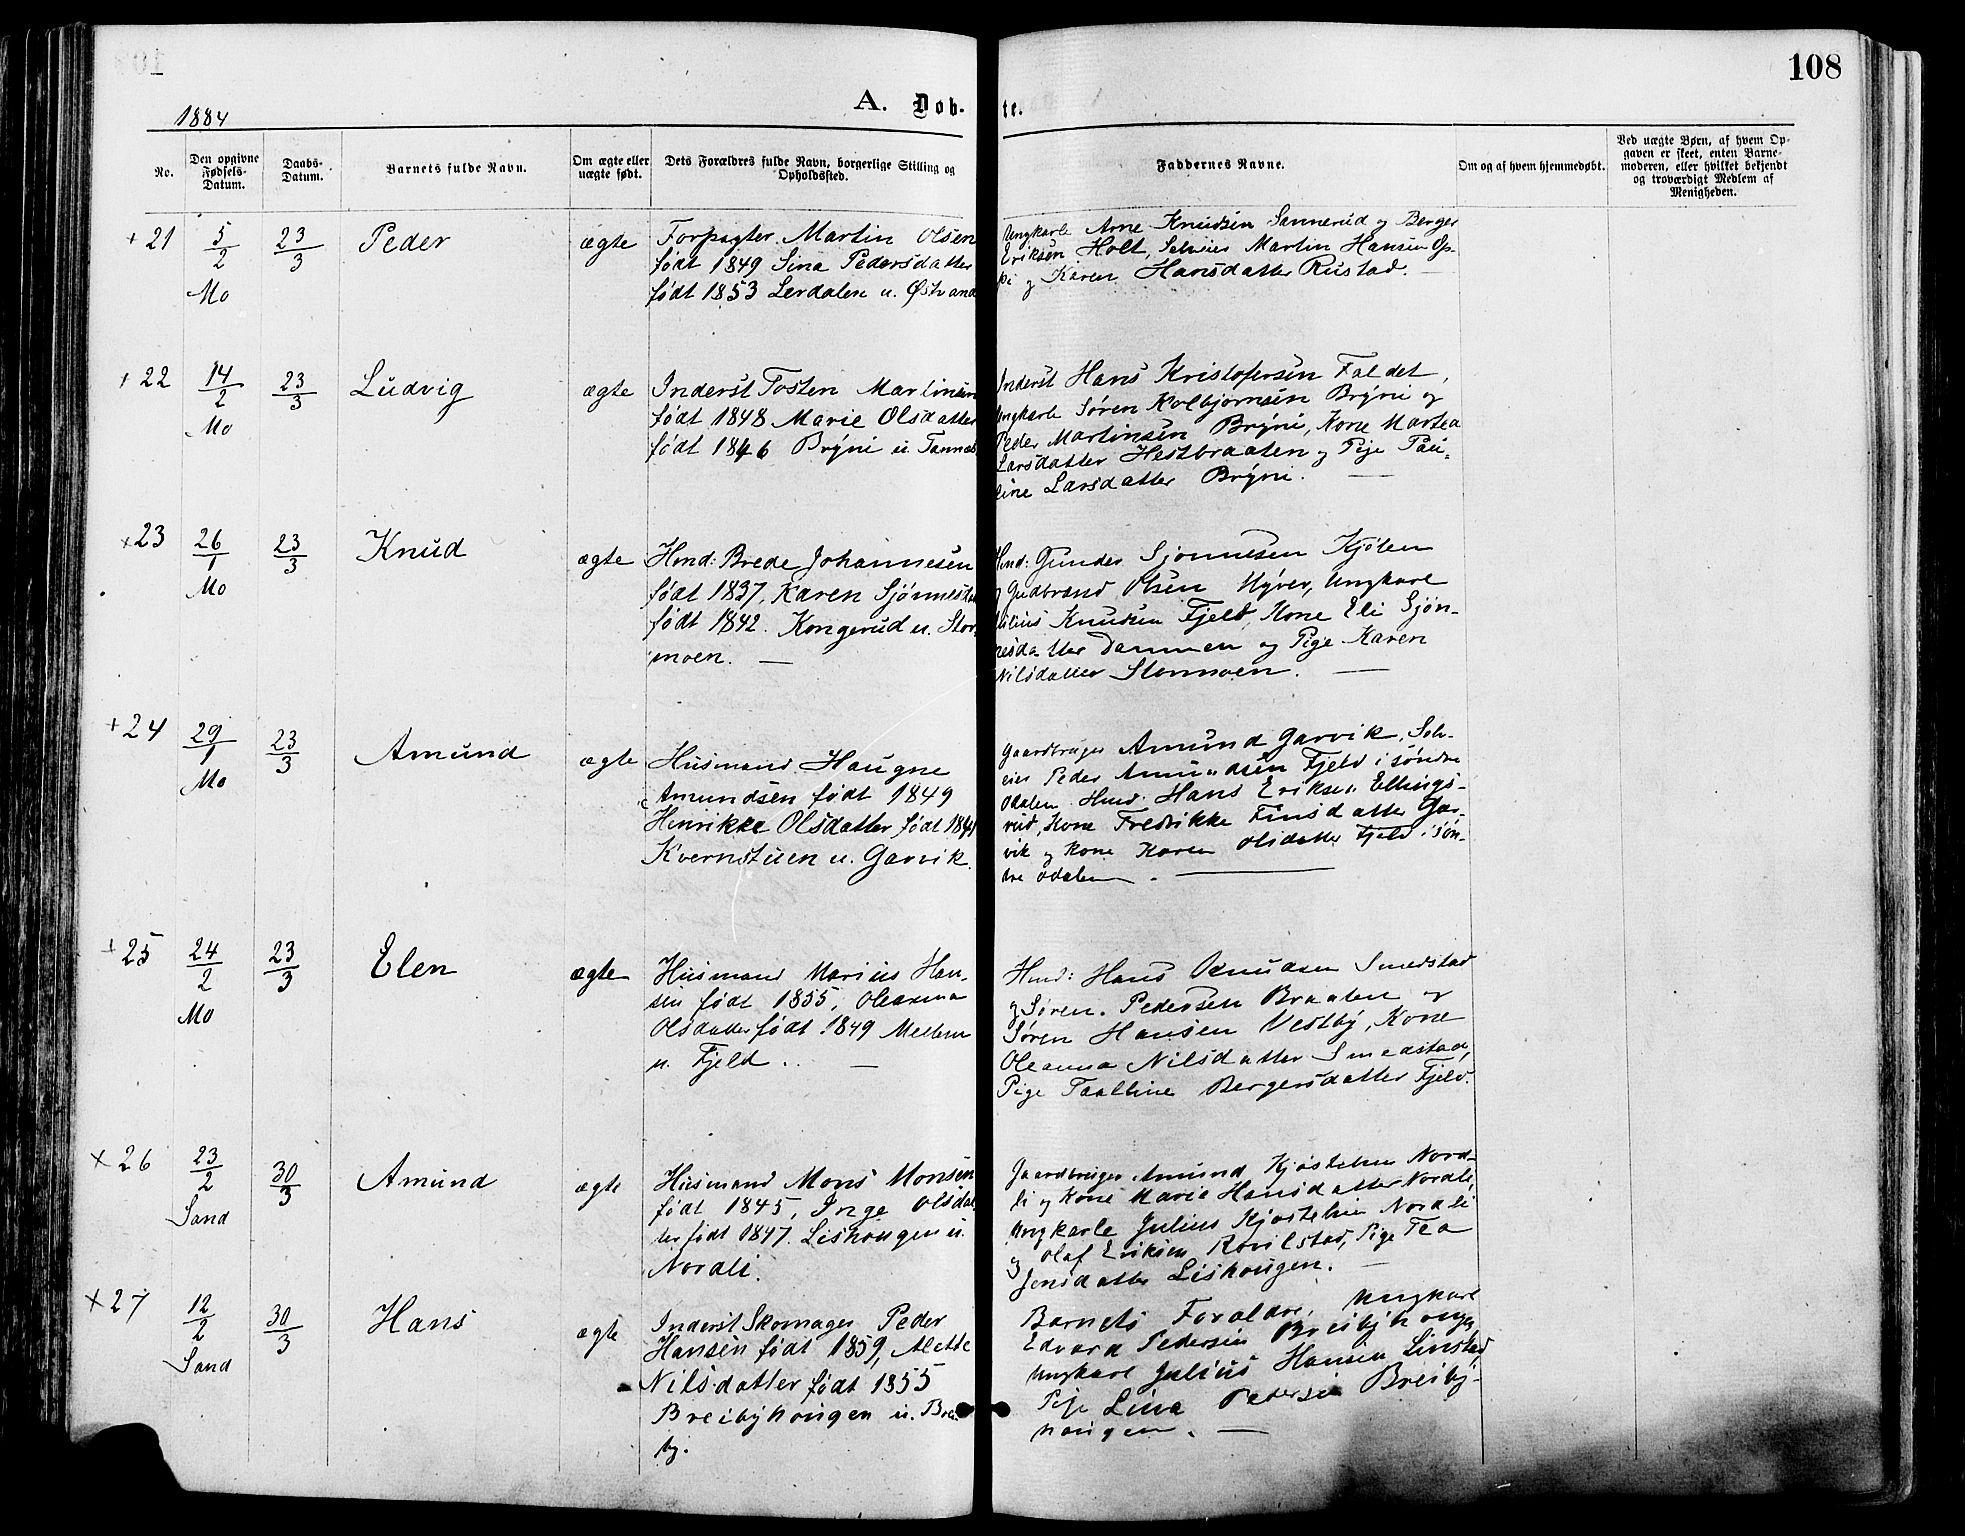 108
1884
A. Døb-
te.
No.
Den opgivne Fødsels-Datum.
Daabs-Datum.
Barnets fulde Navn.
Om ægte eller uægte født.
Dets Forældres fulde Navn, borgerlige Stilling og Opholdssted.
Faddernes Navne.
Om og af hvem hjemmedøbt.
Ved uægte Børn, af hvem Op-
gaven er skeet, enten Barne-
moderen, eller hvilket bekjendt
og troværdigt Medlem af
Menigheden.
+ 21 5/2 Mo 23/3 Peder ægte
Forpagter Martin Olsen
født 1849 Sina Pedersdatter
født 1853 Lerdalen u.
Ungkarle Arne Knudsen Sannerud og Berger
Eriksen Holt, Selveier Martin Hansen Op-
og Karen Hansdatter Rustad.
+ 22 14/2 Mo 23/3 Ludvig ægte
Inderst Tosten Martinsen
født 1848 Marie Olsdatter
født 1846 Brÿni u.
Inderst Hans Kristofersen Faldet,
Ungkarle Søren Kolbjørnsen Brÿni og
Peder Martinsen Brÿni, Kone Martea
Larsdatter Hestbraaten og Pige Pau-
line Larsdatter Brÿni. —
x 23 26/1 Mo 23/3 Knud ægte
Hmd: Brede Johannesen
født 1837, Karen
født 1842. Kongerud u. Stor-
moen. —
Hmd: Gunder Sjønnesen Kjølen
og Gudbrand Olsen Myrer, Ungkarl
Julius Knudsen Fjeld, Kone Eli Sjøn-
nesdatter Dammen og Pige Karen
Nilsdatter Stormoen. —
+ 24 29/1 Mo 23/3 Amund ægte
Husmand Haugne
Amundsen født 1849
Henrikke Olsdatter født
Kvernstuen u. Garvik.
Gaardbruger Amund Garvik, Selv-
eier Peder Amundsen Fjeld i søndre
Odalen. Hmd. Hans Eriksen Ellings-
rud, Kone Fredrikke Finsdatter Gar-
vik og Kone Karen Olsdatter Fjeld i søn-
dre Odalen. —
+ 25 24/2 Mo 23/3 Elen ægte
Husmand Marius Han-
sen født 1855, Oleanna
Olsdatter født 1849 Mellem
u. Fjeld. —
Hmd: Hans Knudsen Smedstad
og Søren Pedersen Braaten og
Søren Hansen Vestby, Kone
Oleanna Nilsdatter Smedstad,
Pige Taalline Bergersdatter Fjeld.
x 26 23/2 Sand 30/3 Amund ægte
Husmand Mons Monsen
født 1845, Inge Olsdat-
ter født 1847. Lishougen u.
Nordli.
Gaardbruger Amund Kjøstelsen Nord-
li og Kone Marie Hansdatter Nordli,
Ungkarle Julius Kjøstelsen Nordli
og Olaf Eriksen Rovilstad, Pige Tea
Jensdatter Lishougen. —
x 27 12/2 Sand 30/3 Hans ægte
Inderst Skomager Peder
Hansen født 1859, Alette
Nilsdatter født 1855
Breibÿhougen u. Brei-
bÿ.
Barnets Forældre, Ungkarl
Edvard Pedersen Breibÿhougen
Ungkarl Julius Hansen Linstad,
Pige Lina Pedersen Breibÿ-
hougen. —